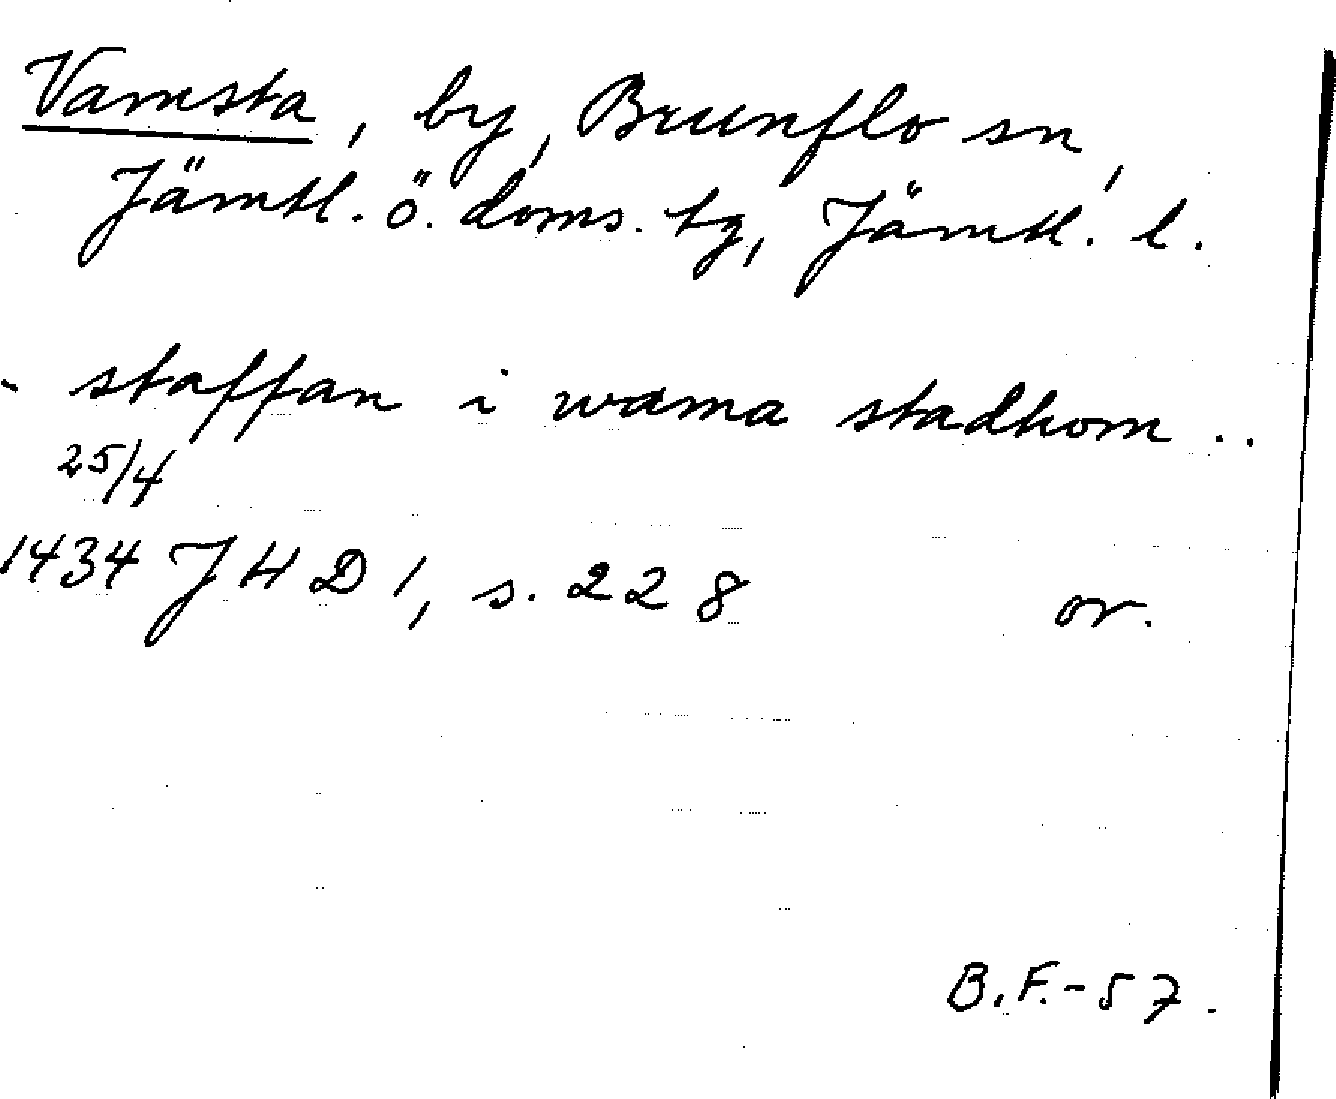 Vamsta, by, Brunflo sn,
Jämtl. ö. doms. tg, Jämtl. l.
- staffan i wama stadhom ..
25/4
1434 JHD 1, s. 228 or.
B.F.-57.